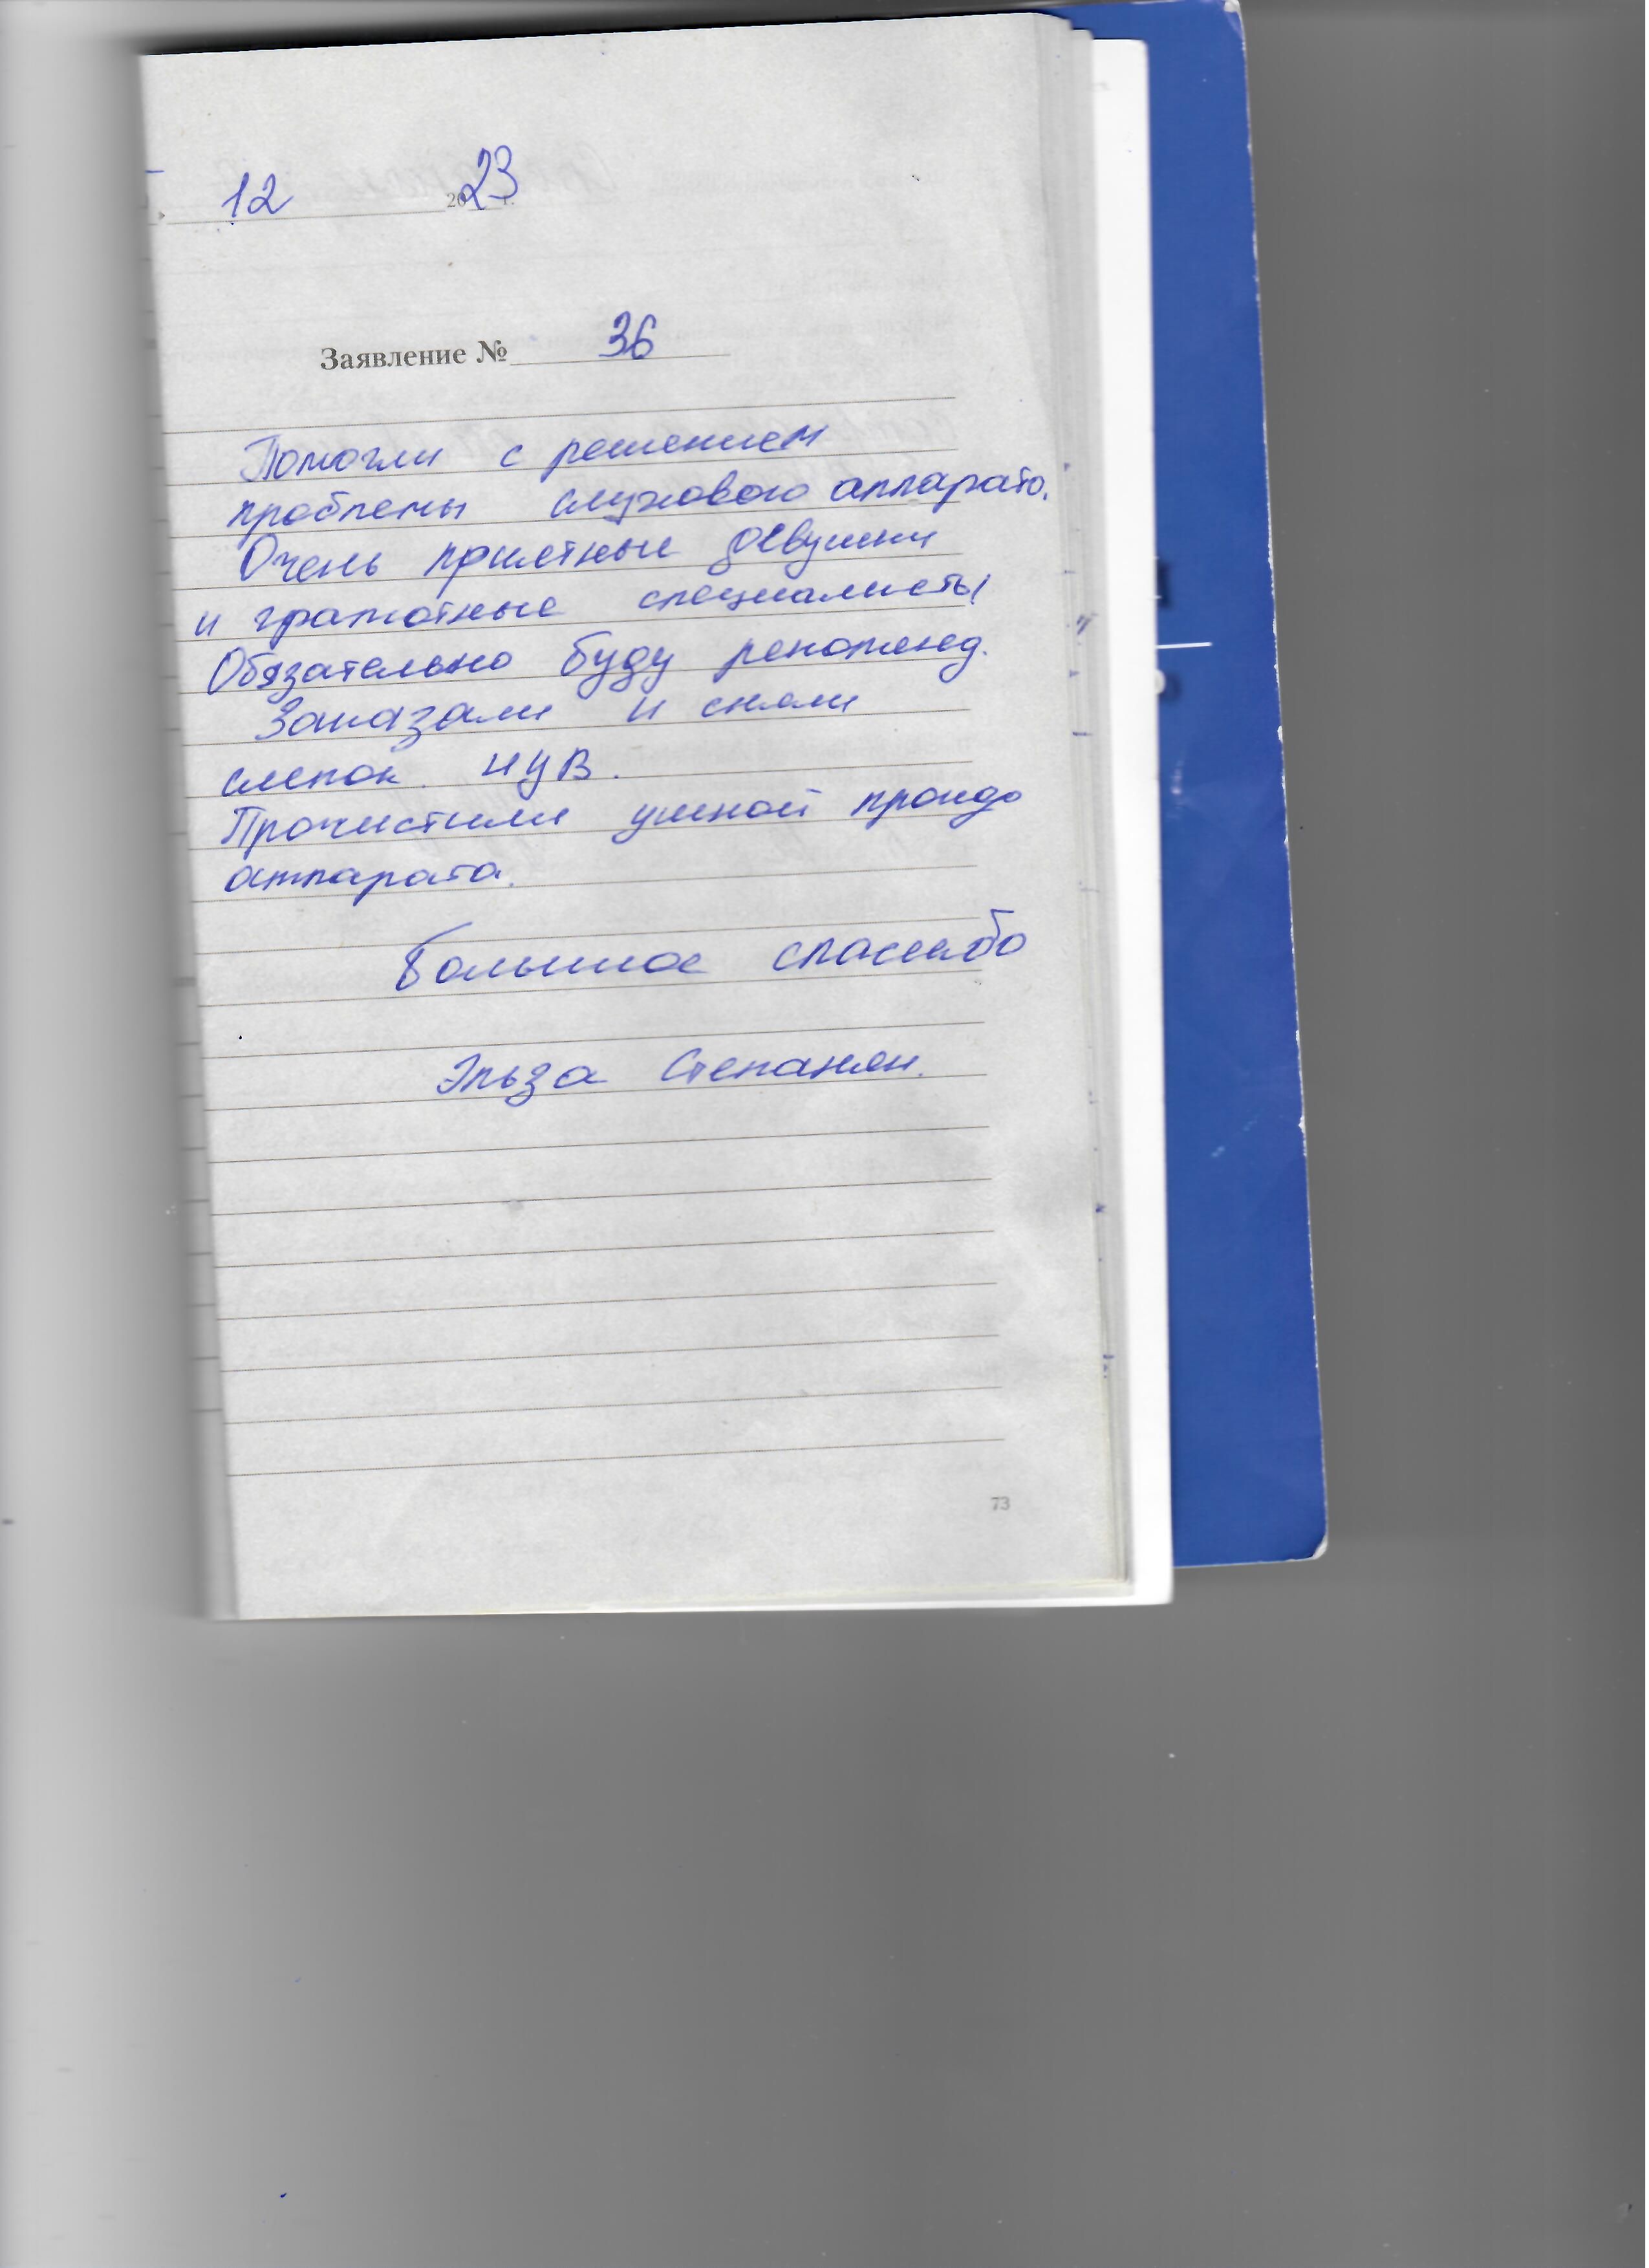 12 2023 г.
Заявление № 36
Помогли с решением
проблемы слухового аппарата.
Очень приятные девушки
и грамотные специалисты
Обязательно буду рекоменд.
Заказали и сняли
слепок ИУВ.
Прочистили ушной
аппарата.
Большое спасибо
Эльза Степанян.
73